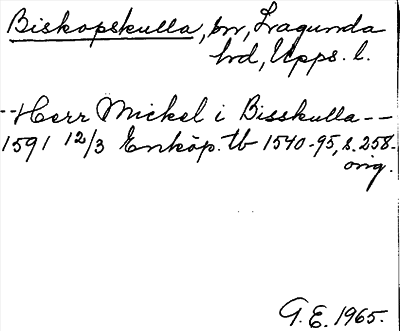 Biskopskulla, sn, Lagunda
hd, Upps. l.
--Herr Mickel i Bisskulla--
1591 12/3 Enköp. tb 1540-95, s. 258.
orig.
G. E. 1965.